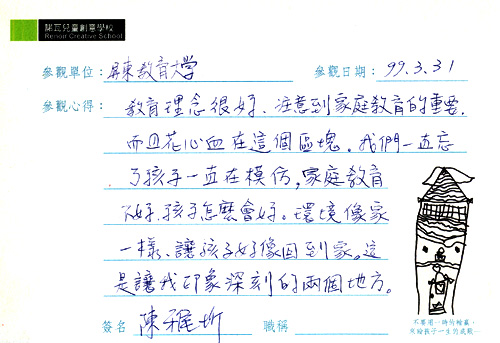 諾瓦兒童創意學校
Renoir Creative School
參觀單位：屏東教育大学
參觀日期：99.3.31
參觀心得：教育理念很好、注意到家庭教育的重要，
而且花心血在這個區塊。我們一直忘
了孩子一直在模仿，家庭教育
不好、孩子怎麼會好。環境像家
一樣、讓孩子好像回到家。這
是讓我印象深刻的兩個地方。
簽名 陳雅圻 職稱
不要用一時的輸贏，
來給孩子一生的成敗